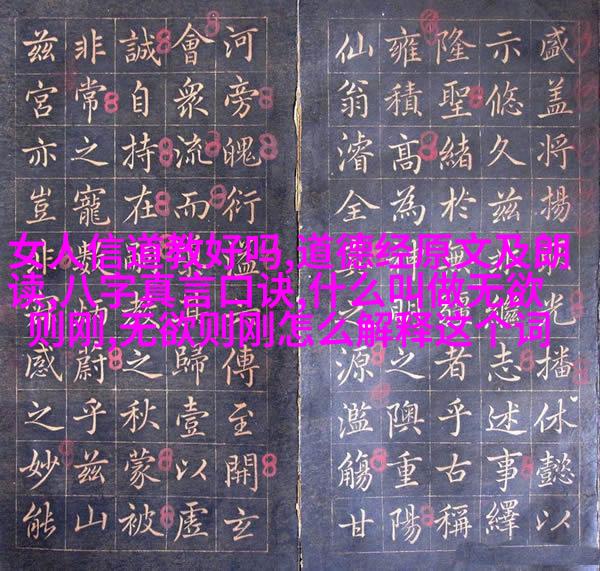 女人信道教好吗,道德经原文及朗
读,八字真言口诀,什么叫做无欲
则刚,无欲则刚怎么解释这个词
盛盖将揚光播休懿以
示悠久兹志述事繹
隆聖緒於無疆者乎古稱
雍積高為神明之隩重陽
仙翁濬全真之源濫觴甘
河旁魄衍溢傳至開玄
會衆流而歸壹以虛
誠自持在教之秋蒙被
非常之寵數蔚乎兹山
兹宮亦豈非感之妙能